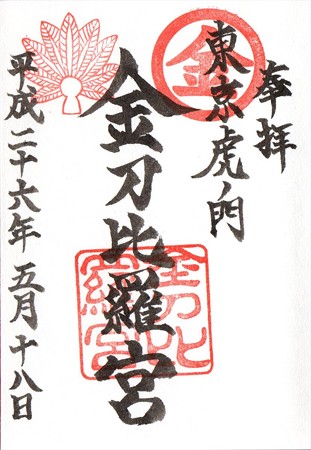 奉拝
東京虎ノ門
金
金刀比羅宮
金刀比羅宮
平成二十六年五月十八日